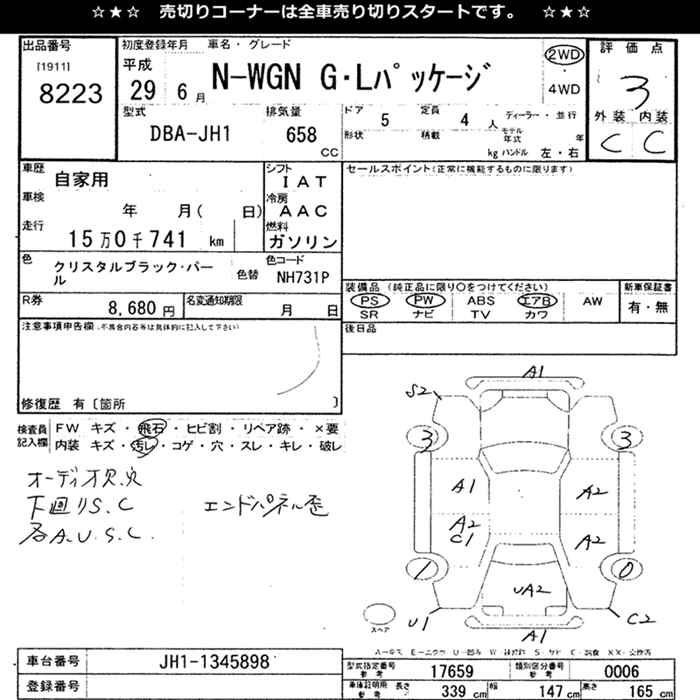 ☆★☆ 売切りコーナーは全車売り切りスタートです。 ☆★☆
出品番号
[1911]
8223
初度登録年月 車名・グレード
平成
29 6月
N-WGN G・Lパッケージ
2WD
4WD
評価点
3
外装 内装
C C
型式
DBA-JH1
排気量
658
CC
ドア 5 定員 4 人 ディーラー・並行
形状 積載 kg モデル年式 年
ハンドル 左・右
車歴
自家用
車検
年 月( 日)
走行
15万0千741 km
シフト
IAT
冷房
AAC
燃料
ガソリン
セールスポイント(正常に機能するものに限ります)
色
クリスタルブラック・パール
色替
色コード
NH731P
装備品 (純正品に限り○をつけてください)
PS PW ABS エアB AW
SR ナビ TV カワ
新車保証書
有・無
R券
8,680 円
名変通知期限
月 日
後日品
注意事項申告欄(不具合内容等は具体的に記入して下さい)
修復歴 有〔箇所 〕
検査員記入欄
FW キズ・飛石・ヒビ割・リペア跡・×要
内装 キズ・汚レ・コゲ・穴・スレ・キレ・破レ
オーディオ欠.穴
下廻りS.C
各A.U.S.C.
エンドパネル歪
A1
S2
3 3
A1 A2
A2
C1
A2
1 0
UA2
U1
A1
C2
スペア
車台番号
JH1-1345898
登録番号
型式指定番号
参考
17659
類別区分番号
参考
0006
車検証明用
参考
長さ 339 cm 幅 147 cm 高さ 165 cm